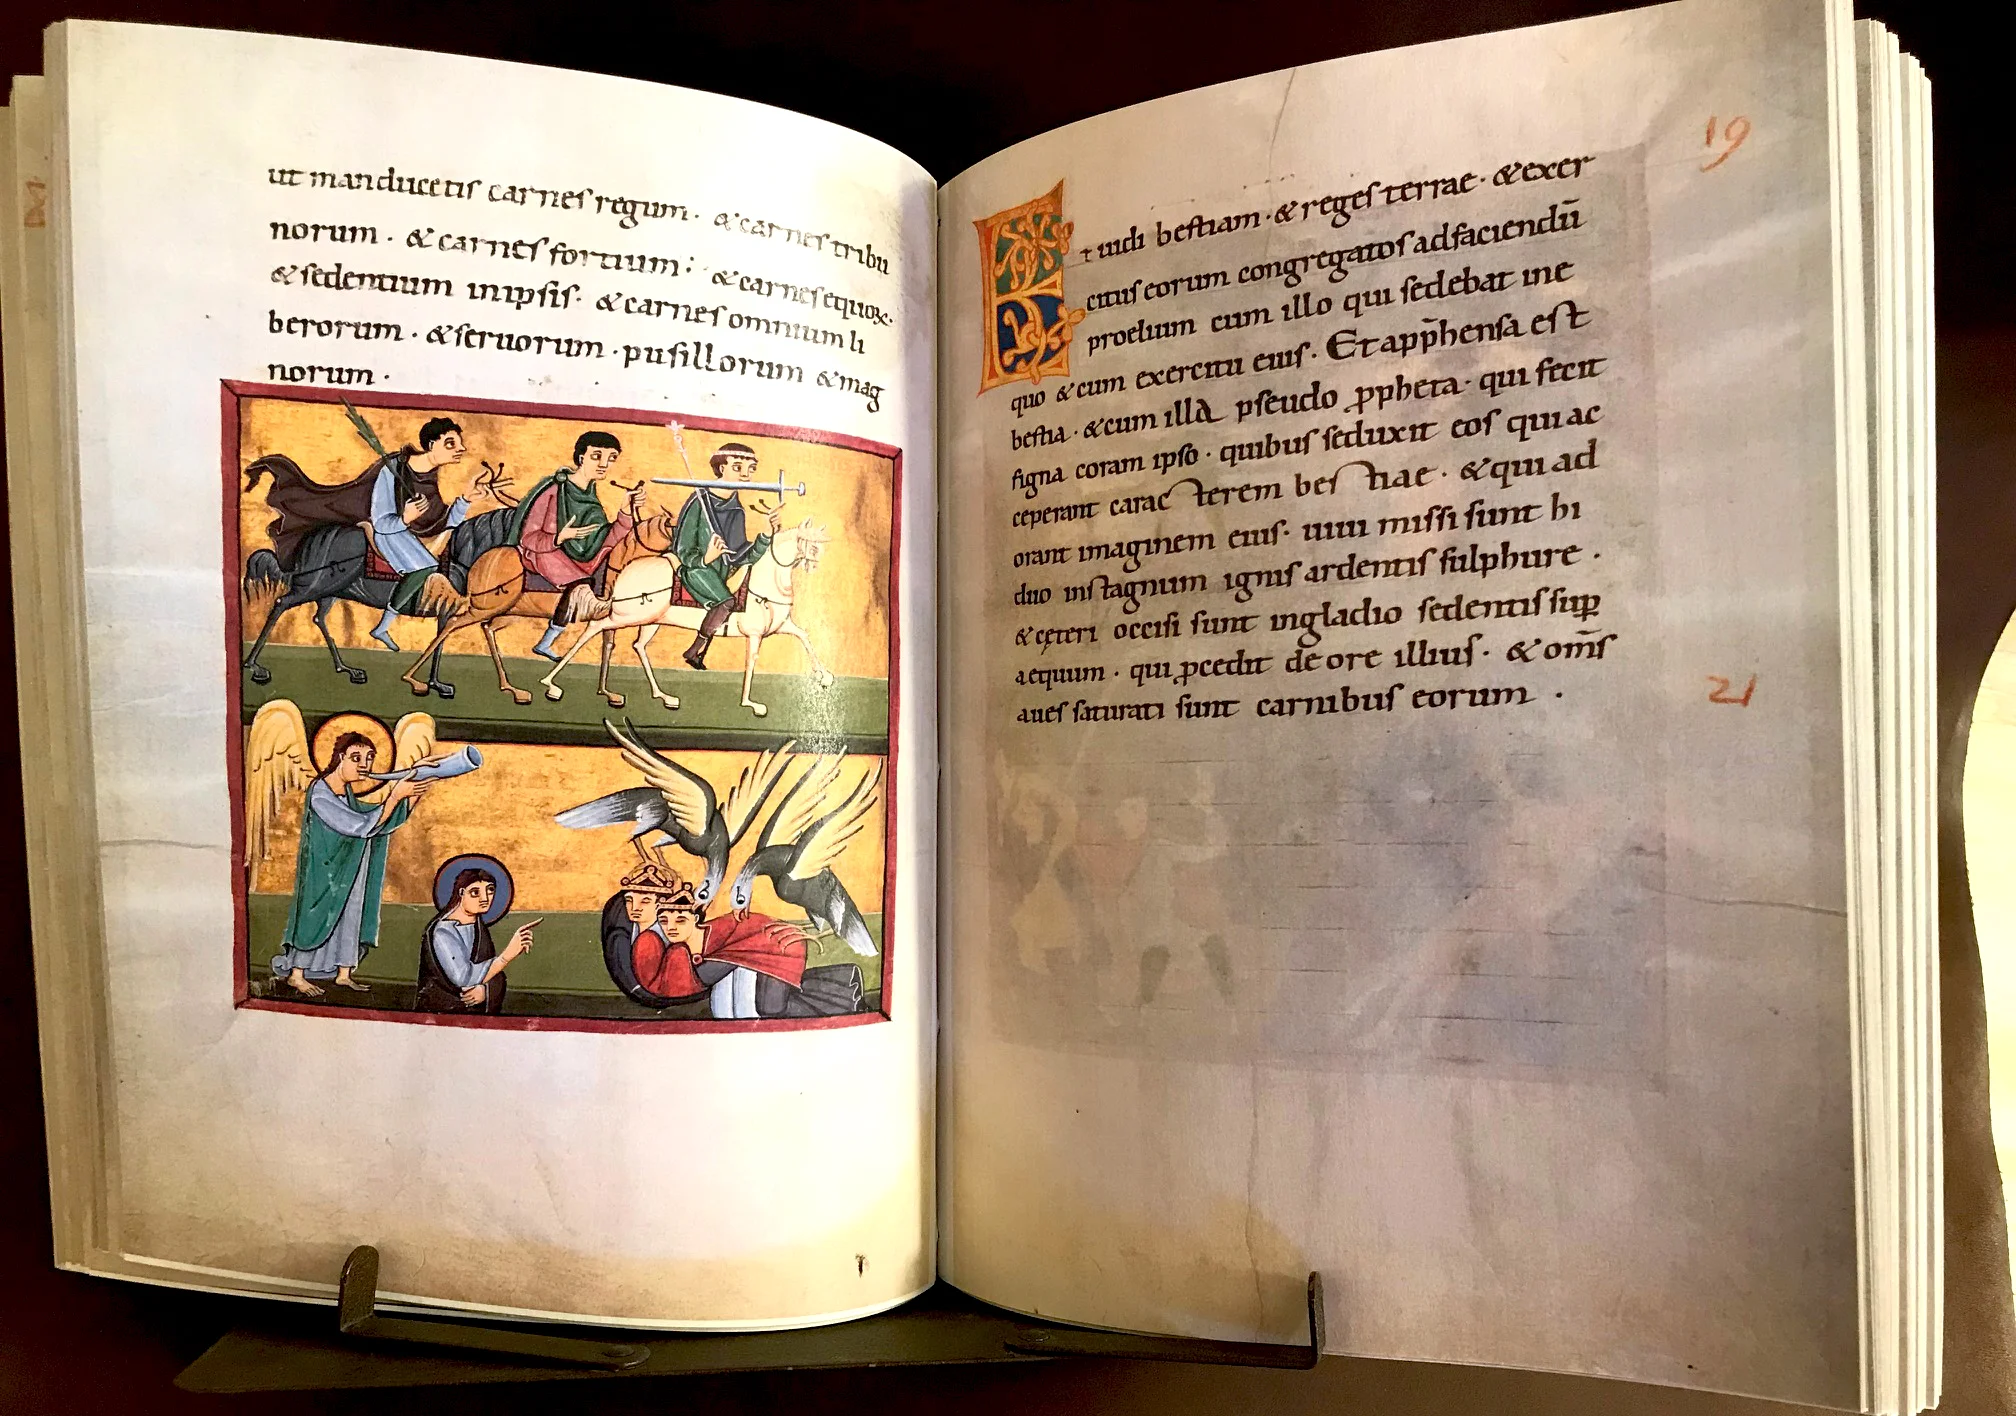 ut manducetis carnes regum · & carnes tribu
norum · & carnes fortium ; & carnes equoꝝ ·
& sedentium in ipsis · & carnes omnium li
berorum · & seruorum · pusillorum & mag
norum ·
19
Et uidi bestiam · & reges terrae · & exer
citus eorum congregatos ad faciendū
proelium cum illo qui sedebat in e
quo & cum exercitu eius · Et app̄hensa est
bestia · & cum illa pseudo ꝓpheta · qui fecit
signa coram ipso · quibus seduxit eos qui ac
ceperant carac terem bes tiae · & qui ad
orant imaginem eius · uiui missi sunt hi
duo in stagnum ignis ardentis sulphure ·
& cęteri occisi sunt in gladio sedentis suꝑ
aequum · qui ꝓcedit de ore illius · & om̄s
21
aues saturati sunt carnibus eorum ·